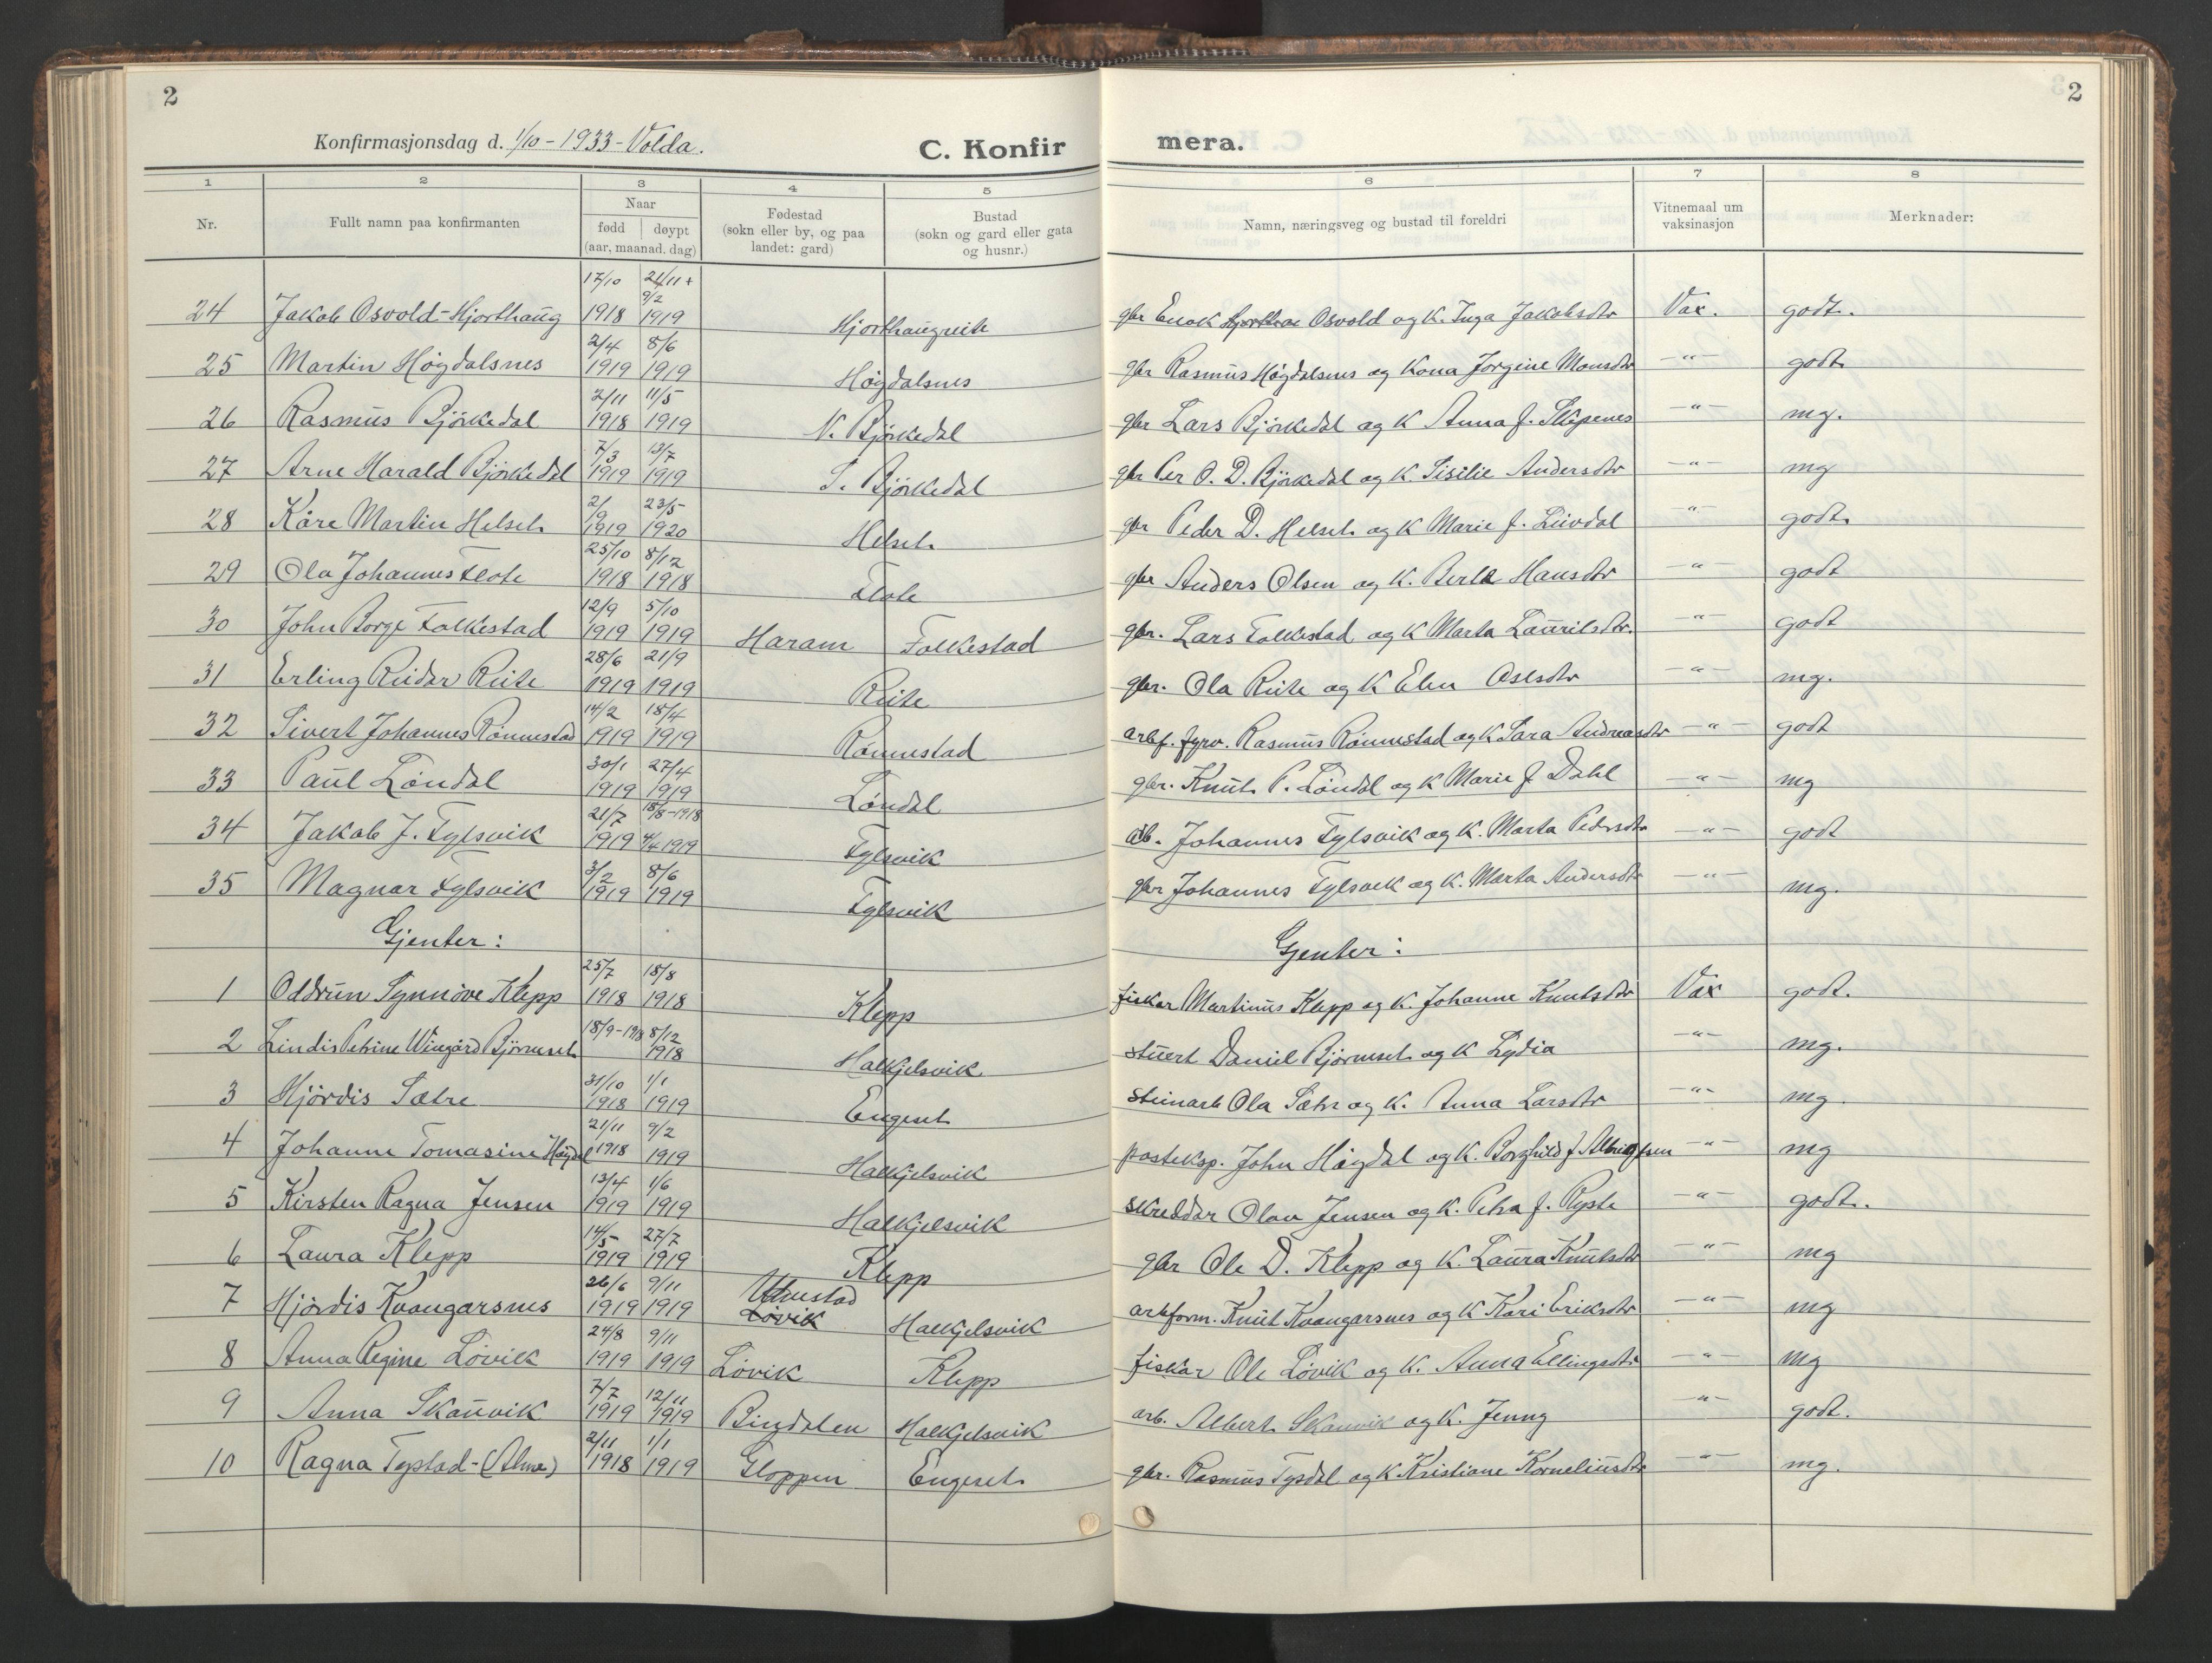 2
Konfirmasjonsdag d. 1/10 - 1933 - Volda.
C. Konfir mera.
2
1 2 3 4 5 6 7 8
Nr. Fullt namn paa konfirmanten Naar fødd døypt (aar, maanad, dag) Fødestad (sokn eller by, og paa landet: gard) Bustad (sokn og gard eller gata og husnr.) Namn, næringsveg og bustad til foreldri Vitnemaal um vaksinasjon Merknader:
24 Jakob Osvold-Hjorthaug 17/10 1918 24/11 + 9/2 1919 Hjorthaugreite gbr Enok Osvold og k. Inga Jakobsdtr Vax. godt.
25 Martin Høgdalsnes 2/4 1919 8/6 1919 Høgdalsnes gbr Rasmus Høgdalsnes og Kona Jorgine Monsdtr -"- godt
26 Rasmus Bjørkedal 2/11 1918 11/5 1919 N. Bjørkedal gbr Lars Bjørkedal og K Anna f. Skipenes -"- mg.
27 Arne Harald Bjørkedal 7/3 1919 13/7 1919 S. Bjørkedal gbr Per O. D. Bjørkedal og K. Sisilie Andersdtr -"- mg
28 Kåre Martin Helset 2/9 1919 23/5 1920 Helset gbr Peder D. Helset og K Marie f. Løvdal -"- godt
29 Ola Johannes Flote 25/10 1918 8/12 1918 Flote gbr Anders Olsen og K. Berte Hansdtr -"- godt
30 John Borge Folkestad 12/9 1919 5/10 1919 Haram Folkestad gbr. Lars Folkestad og K Marta Lauritsdtr. -"- godt
31 Erling Reidar Reite 28/6 1919 21/9 1919 Reite gbr. Ola Reite og K Elen Oselsdtr -"- mg.
32 Sivert Johannes Rønnestad 14/2 1919 18/4 1919 Rønnestad arbf. fyrv. Rasmus Rønnestad og K Sara Andreasdtr -"- godt
33 Paul Løndal 30/1 1919 27/4 1919 Løndal gbr. Knut P. Løndal og K Marie f Dahl -"- mg
34 Jakob J. Fylsvik 21/7 1919 18/8-1918 4/4 1919 Fylsvik arb. Johannes Fylsvik og K. Marta Pedersdtr -"- godt
35 Magnar Fylsvik 3/2 1919 8/6 1919 Fylsvik gbr Johannes Fylsvik og K. Marta Andersdtr -"- mg.
Gjenter: Gjenter:
1 Oddrun Synnøve Klepp 25/7 1918 18/8 1918 Klepp fiskar Martinus Klepp og K. Johanne Knutsdtr Vax godt.
2 Lindis Petrine Wingård Bjørneset 18/9-1918 8/12 1918 Halkjelsvik stuert Daniel Bjørneset og K Lydia -"- mg.
3 Hjørdis Sætre 31/10 1918 1/1 1919 Engeset steinarb Ola Sætre og K. Anna Larsdtr -"- mg.
4 Johanne Tomasine Høgdal 21/11 1918 9/2 1919 Halkjelsvik posteksp. John Høgdal og K. Borghild f Albrigtsen -"- mg
5 Kirsten Ragna Jensen 13/4 1919 1/6 1919 Halkjelsvik skreddar Olav Jensen og K. Petra f. Ryste -"- godt.
6 Laura Klepp 14/5 1919 27/7 1919 Klepp gbr Ole D. Klepp og K. Laura Knutsdtr -"- mg
7 Hjørdis Kvangarsnes 26/6 1919 9/11 1919 Løvik Halkjelsvik arbform. Knut Kvangarsnes og K Kari Eriksdtr -"- mg
8 Anna Regine Løvik 24/8 1919 9/11 1919 Løvik Klepp fiskar Ole Løvik og K. Anna Ellingsdtr -"- mg
9 Anna Skauvik 7/7 1919 12/11 1919 Bindalen Halkjelsvik arb. Albert Skauvik og K. Jenny -"- godt.
10 Ragna Tystad-(Alme) 2/11 1918 1/1 1919 Gloppen Engeset gbr. Rasmus Tysdal og K Kristiane Korneliusdtr -"- mg.